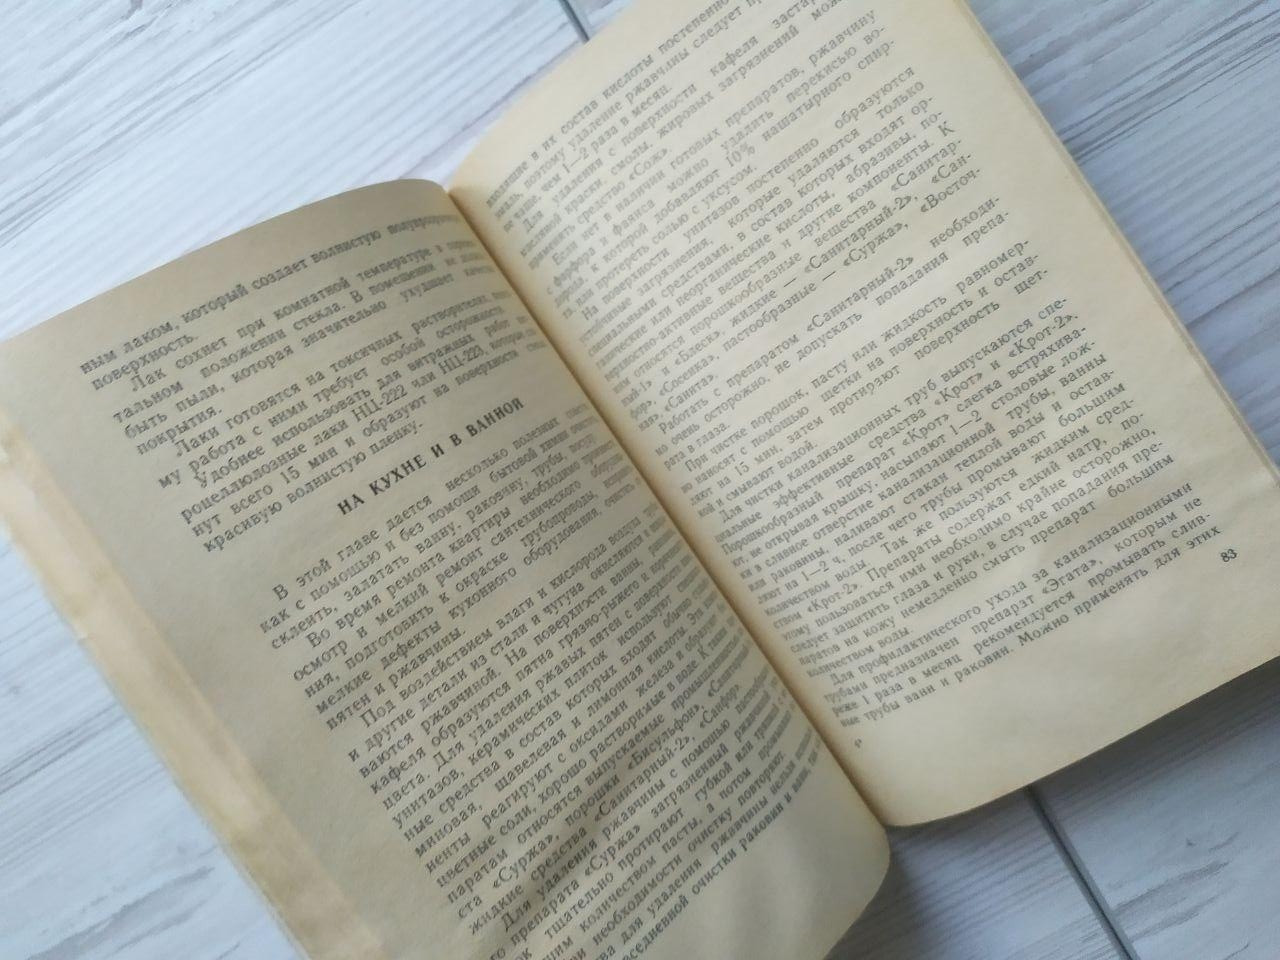 ным лаком, который создает волнистую полупрозрачную
поверхность.
Лак сохнет при комнатной температуре в
тальном положении стекла. В помещении не
быть пыли, которая значительно ухудшает качество
покрытия.
Лаки готовятся на токсичных растворителях,
му работа с ними требует особой осторожности.
Удобнее использовать для витражных работ
роцеллюлозные лаки НЦ-222 или НЦ-223, которые
нут всего 15 мин и образуют на поверхности
красивую волнистую пленку.
НА КУХНЕ И В ВАННОЙ
В этой главе дается несколько полезных
как с помощью и без помощи бытовой химии
склеить, залатать ванну, раковину, трубы, посуду.
Во время ремонта квартиры необходимо
осмотр и мелкий ремонт сантехнического
ния, подготовить к окраске трубопроводы,
мелкие дефекты кухонного оборудования,
пятен и ржавчины.
Под воздействием влаги и кислорода воздуха
и другие детали из стали и чугуна окисляются и
ваются ржавчиной. На поверхности ванны,
кафеля образуются пятна грязно-рыжего и
цвета. Для удаления ржавых пятен с поверхности
унитазов, керамических плиток используют
ные средства в состав которых входят обычно
миновая, щавелевая и лимонная кислоты. Эти
ненты реагируют с оксидами железа и образуют
цветные соли, хорошо растворимые в воде. К таким
паратам относятся выпускаемые промышленностью
«Суржа», порошки «Бисульфон»,
жидкие средства «Санитарный-2», «Санфор».
Для удаления ржавчины с помощью
го препарата «Суржа» загрязненный
ок тщательно протирают губкой или
шим количеством пасты, а потом
ри необходимости очистку повторяют.
ва для удаления ржавчины нельзя
вседневной очистки раковин и ванн,
входящие в их состав кислоты постепенно
эмаль, поэтому удаление ржавчины следует
не чаще, чем 1—2 раза в месяц.
Для удаления с поверхности кафеля
масляной краски, смолы, жировых загрязнений
применять средство «Сож».
Если нет в наличии готовых препаратов, ржавчину
с фарфора и фаянса можно удалять перекисью во-
дорода, к которой добавляют 10% нашатырного спир-
та, или протереть солью с уксусом.
На поверхности унитазов постепенно образуются
устойчивые загрязнения, которые удаляются только
специальными средствами, в состав которых входят ор-
ганические или неорганические кислоты, абразивы, по-
верхностно-активные вещества и другие компоненты. К
ним относятся порошкообразные вещества «Санитар-
ный-1» и «Блеск», жидкие — «Санитарный-2», «Сан-
фор», «Сосенка», пастообразные — «Суржа», «Восточ-
ная», «Санита».
Работать с препаратом «Санитарный-2» необходи-
мо очень осторожно, не допускать попадания препа-
рата в глаза.
При чистке порошок, пасту или жидкость равномер-
но наносят с помощью щетки на поверхность и остав-
ляют на 15 мин, затем протирают поверхность щет-
кой и смывают водой.
Для чистки канализационных труб выпускаются спе-
циальные эффективные средства «Крот» и «Крот-2».
Порошкообразный препарат «Крот» слегка встряхива-
ют, не открывая крышку, насыпают 1—2 столовые лож-
ки в сливное отверстие канализационной трубы, ванны
или раковины, наливают стакан теплой воды и остав-
ляют на 1—2 ч, после чего трубы промывают большим
количеством воды. Так же пользуются жидким сред-
ством «Крот-2». Препараты содержат едкий натр, по-
этому пользоваться ими необходимо крайне осторожно,
следует защитить глаза и руки, в случае попадания пре-
паратов на кожу немедленно смыть препарат большим
количеством воды.
Для профилактического ухода за канализационными
трубами предназначен препарат «Эгата», которым не
реже 1 раза в месяц рекомендуется промывать слив-
ные трубы ванн и раковин. Можно применять для этих
83